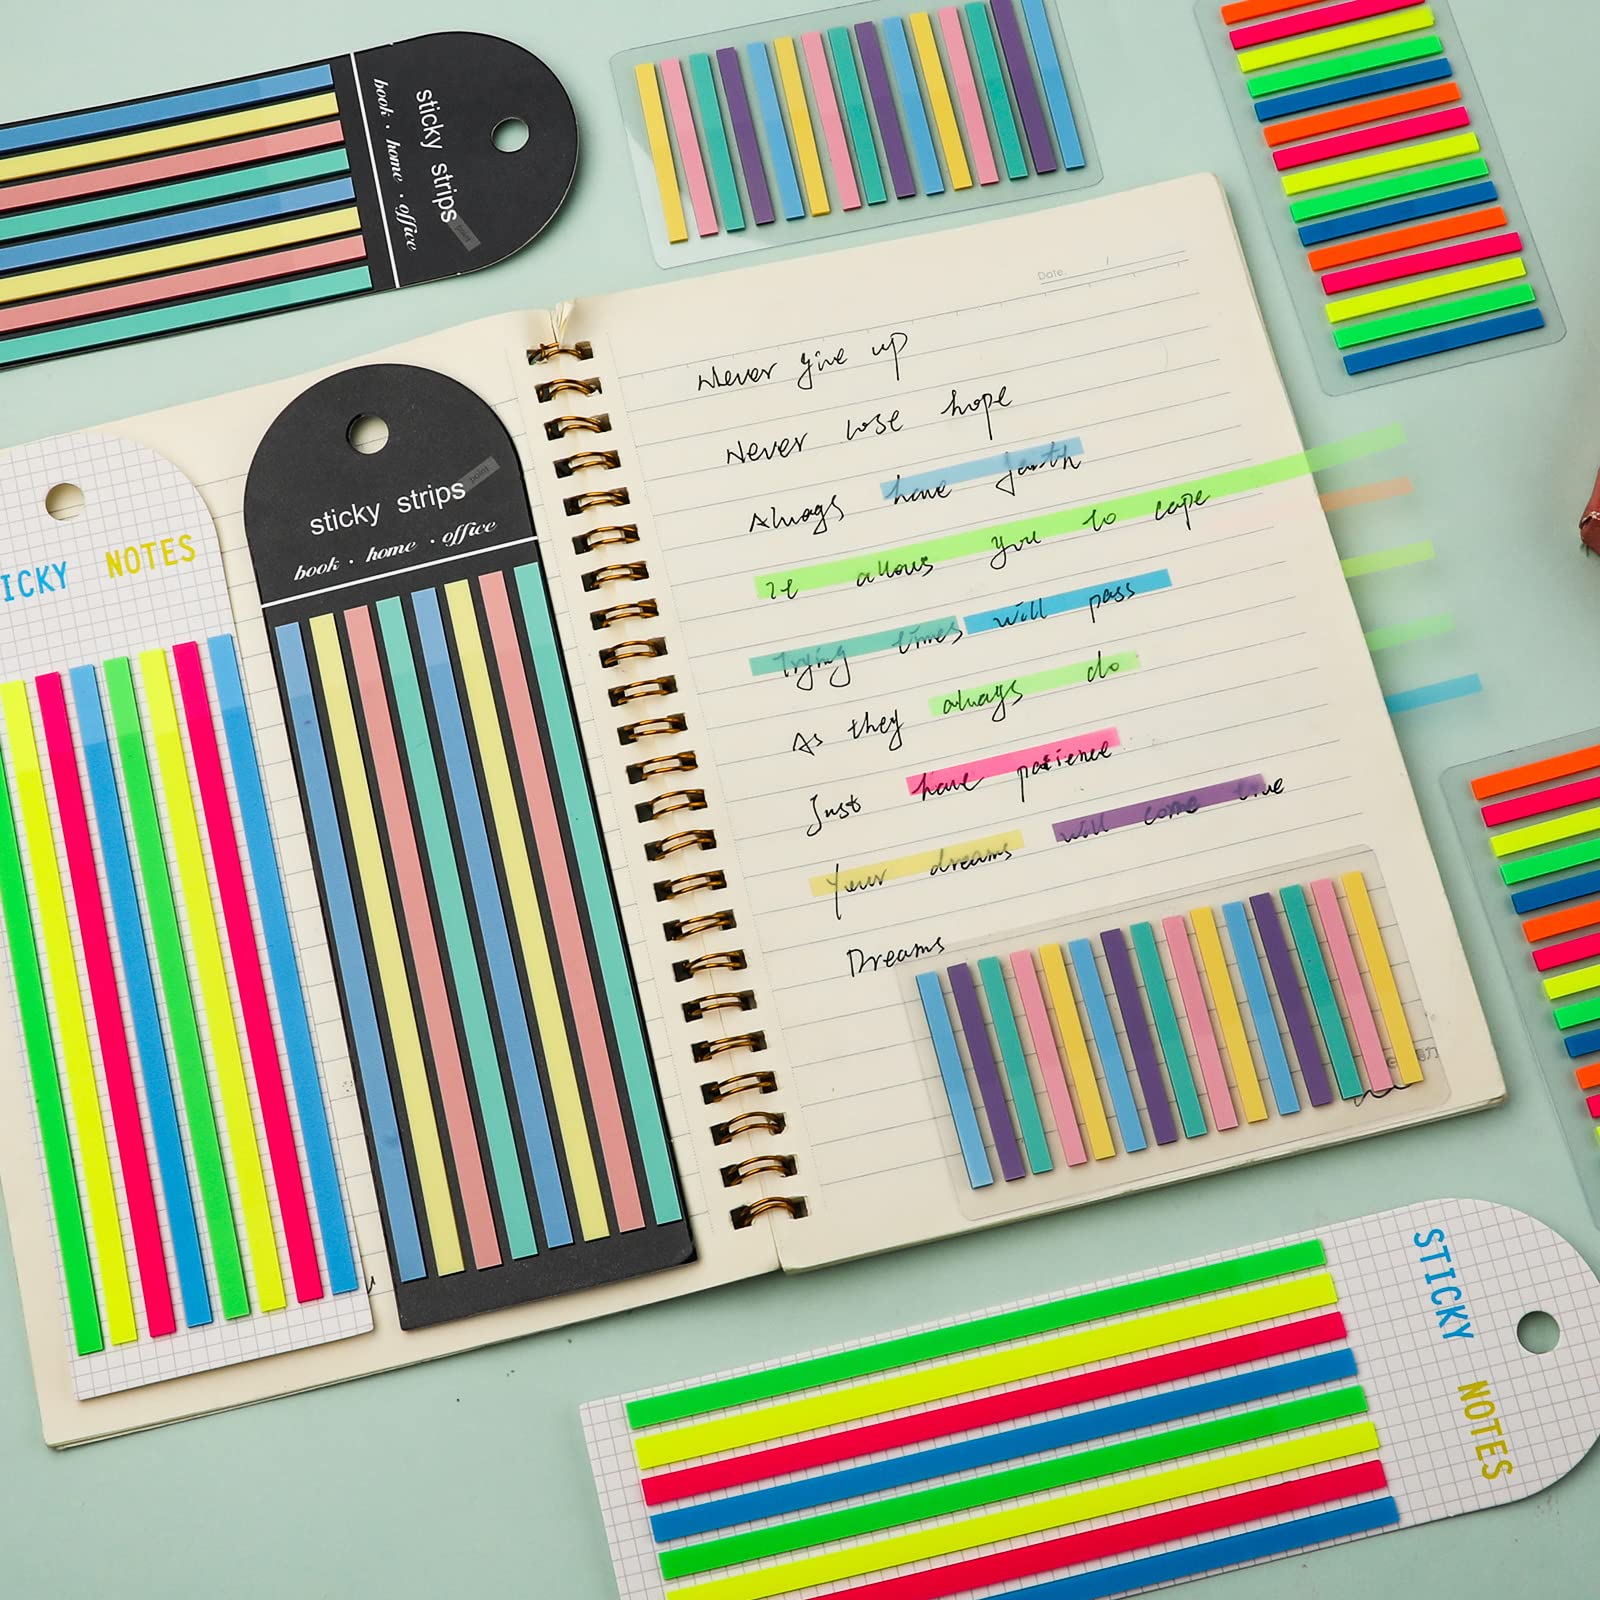 sticky strips
point
book · home · office
sticky strips
point
book · home · office
ICKY NOTES
Date.
Never give up
Never lose hope
Always have faith
It allows you to cope
Trying times will pass
As they always do
Just have patience
Your dreams will come true
Dreams
STICKY NOTES